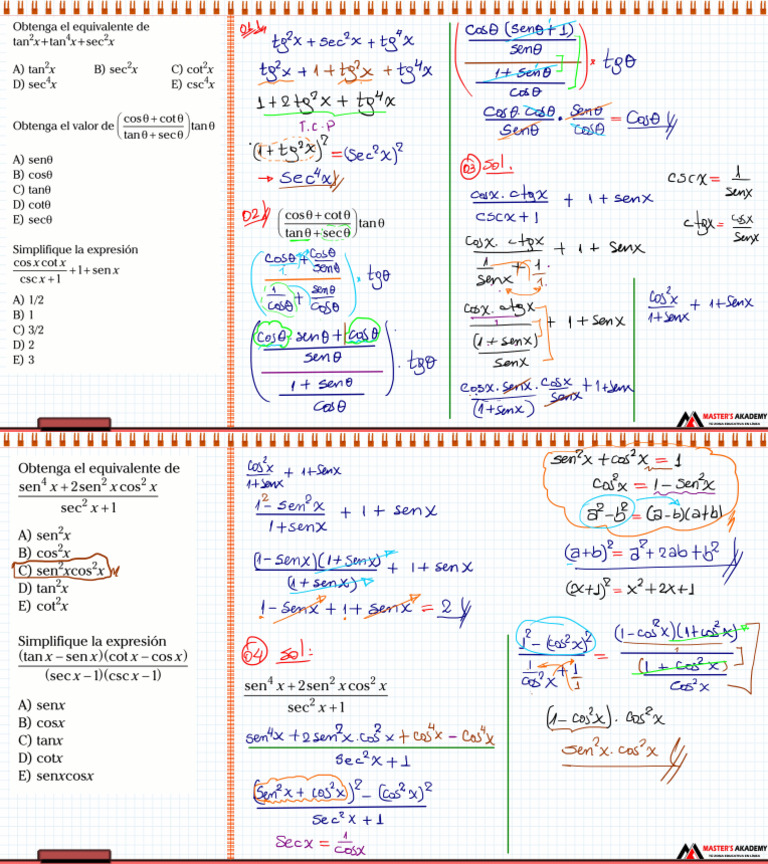 Obtenga el equivalente de
tan²x+tan⁴x+sec²x
A) tan²x B) sec²x C) cot²x
D) sec⁴x E) csc⁴x
Obtenga el valor de (cosθ+cotθ / tanθ+secθ) tanθ
A) senθ
B) cosθ
C) tanθ
D) cotθ
E) secθ
Simplifique la expresión
cos x cot x / csc x+1 +1+sen x
A) 1/2
B) 1
C) 3/2
D) 2
E) 3
01)
tg²x + sec²x + tg⁴x
tg²x + 1 + tg²x + tg⁴x
1 + 2tg²x + tg⁴x
T.C.P
(1 + tg²x)² = (sec²x)²
→ sec⁴x
02)
(cosθ+cotθ / tanθ+secθ) tanθ
(cosθ/1 + cosθ/senθ / 1/cosθ + senθ/cosθ) · tgθ
(cosθ · senθ + cosθ / senθ / 1 + senθ / cosθ) · tgθ
cosθ (senθ + 1) / senθ / 1 + senθ / cosθ · tgθ
cosθ · cosθ / senθ · senθ / cosθ = cosθ
03) sol.
cosx · ctgx / cscx + 1 + 1 + senx
cscx = 1 / senx
ctgx = cosx / senx
cosx · ctgx / 1/senx + 1/1 + 1 + senx
cosx · ctgx / 1 / (1 + senx) / senx + 1 + senx
cosx · senx / (1 + senx) · cosx / senx + 1 + senx
cos²x / 1+senx + 1+senx
MASTER'S ACADEMY
TU ZONA EDUCATIVA EN LÍNEA
Obtenga el equivalente de
sen⁴ x+2sen² x cos² x / sec² x+1
A) sen²x
B) cos²x
C) sen²xcos²x
D) tan²x
E) cot²x
Simplifique la expresión
(tan x−sen x)(cot x−cos x) / (sec x−1)(csc x−1)
A) senx
B) cosx
C) tanx
D) cotx
E) senxcosx
cos²x / 1+senx + 1+senx
1² − sen²x / 1+senx + 1 + senx
(1−senx)(1+senx) / (1+senx) + 1+senx
1−senx + 1 + senx = 2
04 sol:
sen⁴ x+2sen² x cos² x / sec² x+1
sen⁴x + 2sen²x.cos²x + cos⁴x − cos⁴x / sec²x + 1
(sen²x + cos²x)² − (cos²x)² / sec²x + 1
secx = 1 / cosx
sen²x + cos²x = 1
cos²x = 1 − sen²x
a²−b² = (a−b)(a+b)
(a+b)² = a² + 2ab + b²
(x+1)² = x² + 2x + 1
1² − (cos²x)² / 1/cos²x + 1/1 = (1−cos²x)(1+cos²x) / 1 / (1 + cos²x) / cos²x
(1−cos²x) · cos²x
sen²x · cos²x
MASTER'S ACADEMY
TU ZONA EDUCATIVA EN LÍNEA